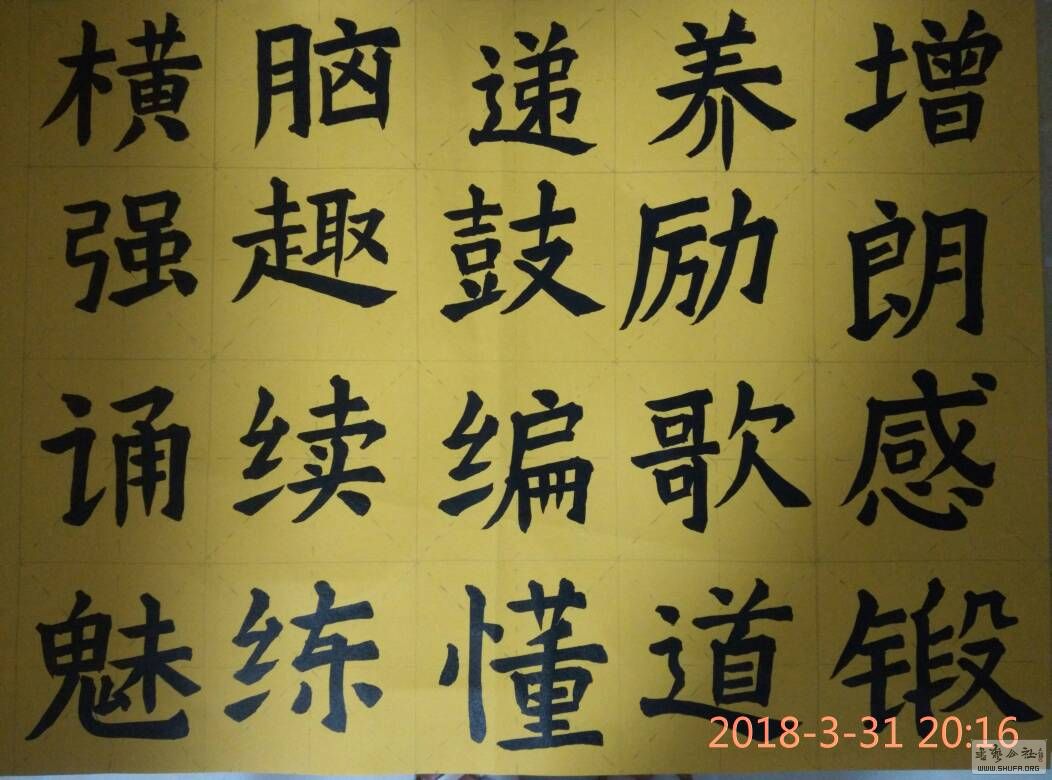 横脑递养增
强趣鼓励朗
诵续编歌感
魅练懂道锻
2018-3-31 20:16
WWW.SHUFA.ORG